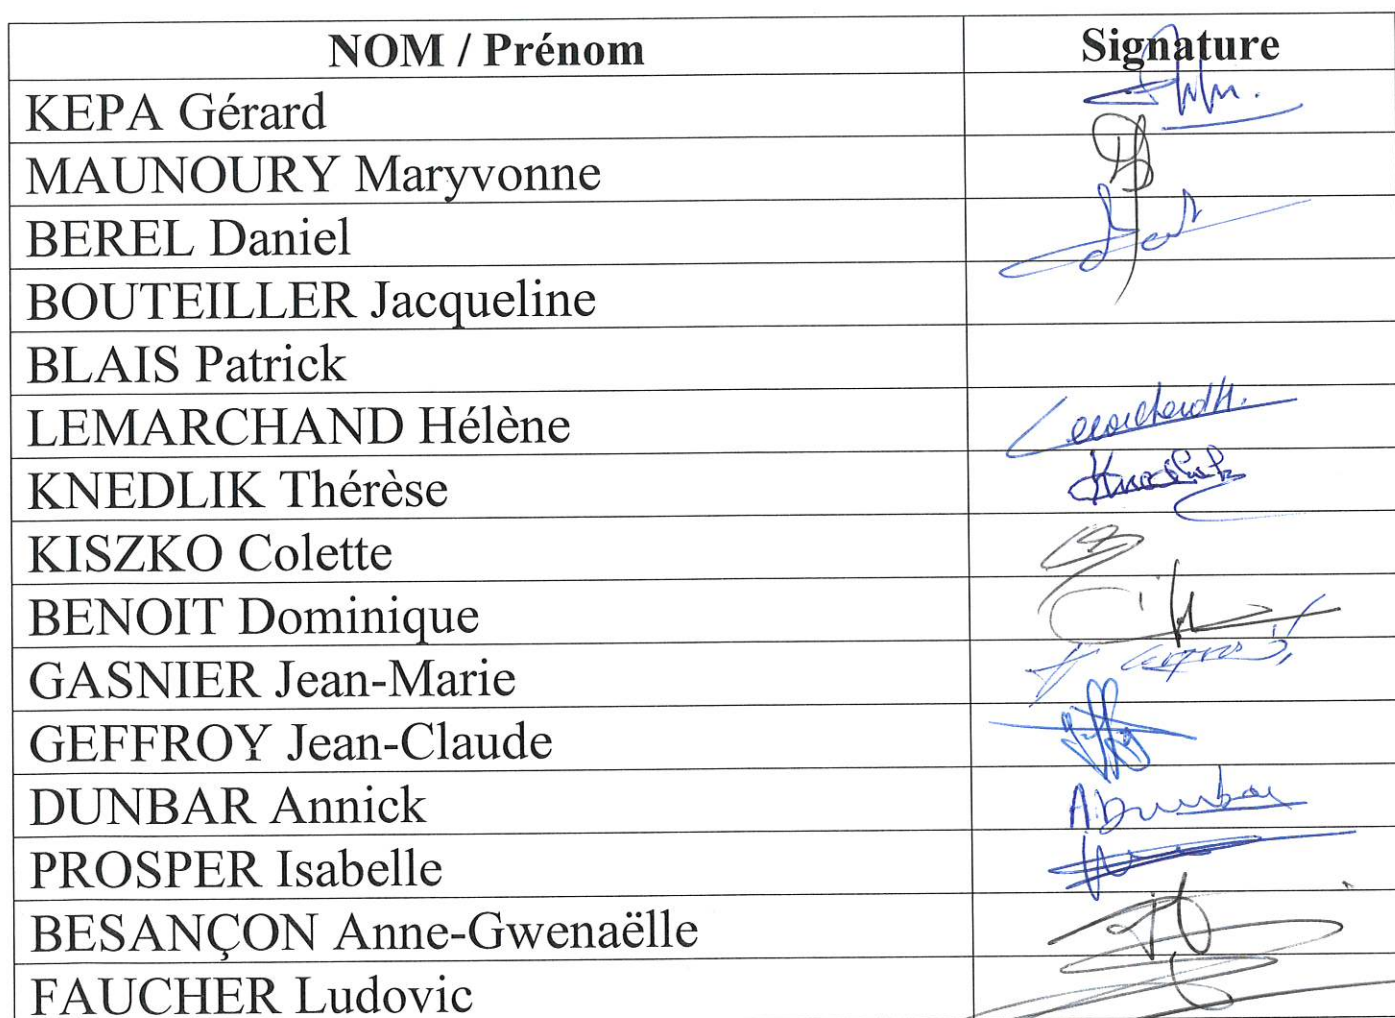 NOM / Prénom Signature
KEPA Gérard
MAUNOURY Maryvonne
BEREL Daniel
BOUTEILLER Jacqueline
BLAIS Patrick
LEMARCHAND Hélène
KNEDLIK Thérèse
KISZKO Colette
BENOIT Dominique
GASNIER Jean-Marie
GEFFROY Jean-Claude
DUNBAR Annick ADunbar
PROSPER Isabelle
BESANÇON Anne-Gwenaëlle
FAUCHER Ludovic